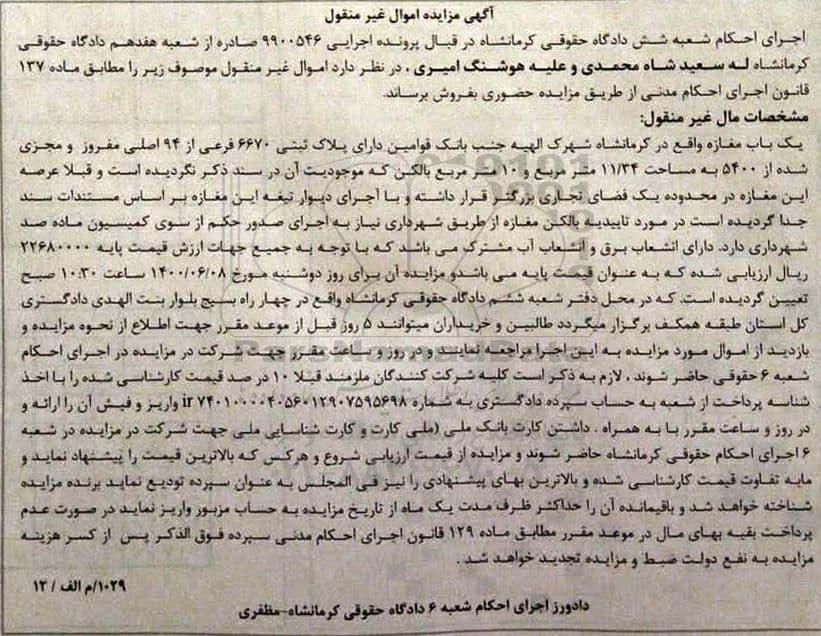 آگهی مزایده اموال غیر منقول
اجرای احکام شعبه شش دادگاه حقوقی کرمانشاه در قبال پرونده اجرایی ۹۹۰۰۵۴۶ صادره از شعبه هفدهم دادگاه حقوقی
کرمانشاه له سعید شاه محمدی و علیه هوشنگ امیری ، در نظر دارد اموال غیر منقول موصوف زیر را مطابق ماده ۱۳۷
قانون اجرای احکام مدنی از طریق مزایده حضوری بفروش برساند.
مشخصات مال غیر منقول:
یک باب مغازه واقع در کرمانشاه شهرک الهیه جنب بانک قوامین دارای پلاک ثبتی ۶۶۷۰ فرعی از ۹۴ اصلی مفروز و مجزی
شده از ۵۴۰۰ به مساحت ۱۱/۳۴ متر مربع و ۱۰ متر مربع بالکن که موجودیت آن در سند ذکر نگردیده است و قبلا عرصه
این مغازه در محدوده یک فضای تجاری بزرگتر قرار داشته و با آجرای دیوار تیغه این مغازه بر اساس مستندات سند
جدا گردیده است در مورد تاییدیه بالکن مغازه از طریق شهرداری نیاز به اجرای صدور حکم از سوی کمیسیون ماده صد
شهرداری دارد. دارای انشعاب برق و انشعاب آب مشترک می باشد که با توجه به جمیع جهات ارزش قیمت پایه ۲۲۶۸۰۰۰۰
ریال ارزیابی شده که به عنوان قیمت پایه می باشدو مزایده آن برای روز دوشنبه مورخ ۱۴۰۰/۰۶/۰۸ ساعت ۱۰:۳۰ صبح
تعیین گردیده است. که در محل دفتر شعبه ششم دادگاه حقوقی کرمانشاه واقع در چهار راه بسیج بلوار بنت الهدی دادگستری
کل استان طبقه همکف برگزار میگردد طالبین و خریداران میتوانند ۵ روز قبل از موعد مقرر جهت اطلاع از نحوه مزایده و
بازدید از اموال مورد مزایده به این اجرا مراجعه نمایند و در روز و ساعت مقرر جهت شرکت در مزایده در اجرای احکام
شعبه ۶ حقوقی حاضر شوند ، لازم به ذکر است کلیه شرکت کنندگان ملزمند قبلا ۱۰ در صد قیمت کارشناسی شده را با اخذ
شناسه پرداخت از شعبه به حساب سپرده دادگستری به شماره ir ۷۴۰۱۰۰۰۰۴۰۵۶۰۱۲۹۰۷۵۹۵۶۹۸ واریز و فیش آن را ارائه و
در روز و ساعت مقرر با به همراه . داشتن کارت بانک ملی (ملی کارت و کارت شناسایی ملی جهت شرکت در مزایده در شعبه
۶ اجرای احکام حقوقی کرمانشاه حاضر شوند و مزایده از قیمت ارزیابی شروع و هرکس که بالاترین قیمت را پیشنهاد نماید و
مابه تفاوت قیمت کارشناسی شده و بالاترین بهای پیشنهادی را نیز فی المجلس به عنوان سپرده تودیع نماید برنده مزایده
شناخته خواهد شد و باقیمانده آن را حداکثر ظرف مدت یک ماه از تاریخ مزایده به حساب مزبور واریز نماید در صورت عدم
پرداخت بقیه بهای مال در موعد مقرر مطابق ماده ۱۲۹ قانون اجرای احکام مدنی سپرده فوق الذکر پس از کسر هزینه
مزایده به نفع دولت ضبط و مزایده تجدید خواهد شد .
۱۰۲۹/م الف / ۱۲
دادورز اجرای احکام شعبه ۶ دادگاه حقوقی کرمانشاه-مظفری